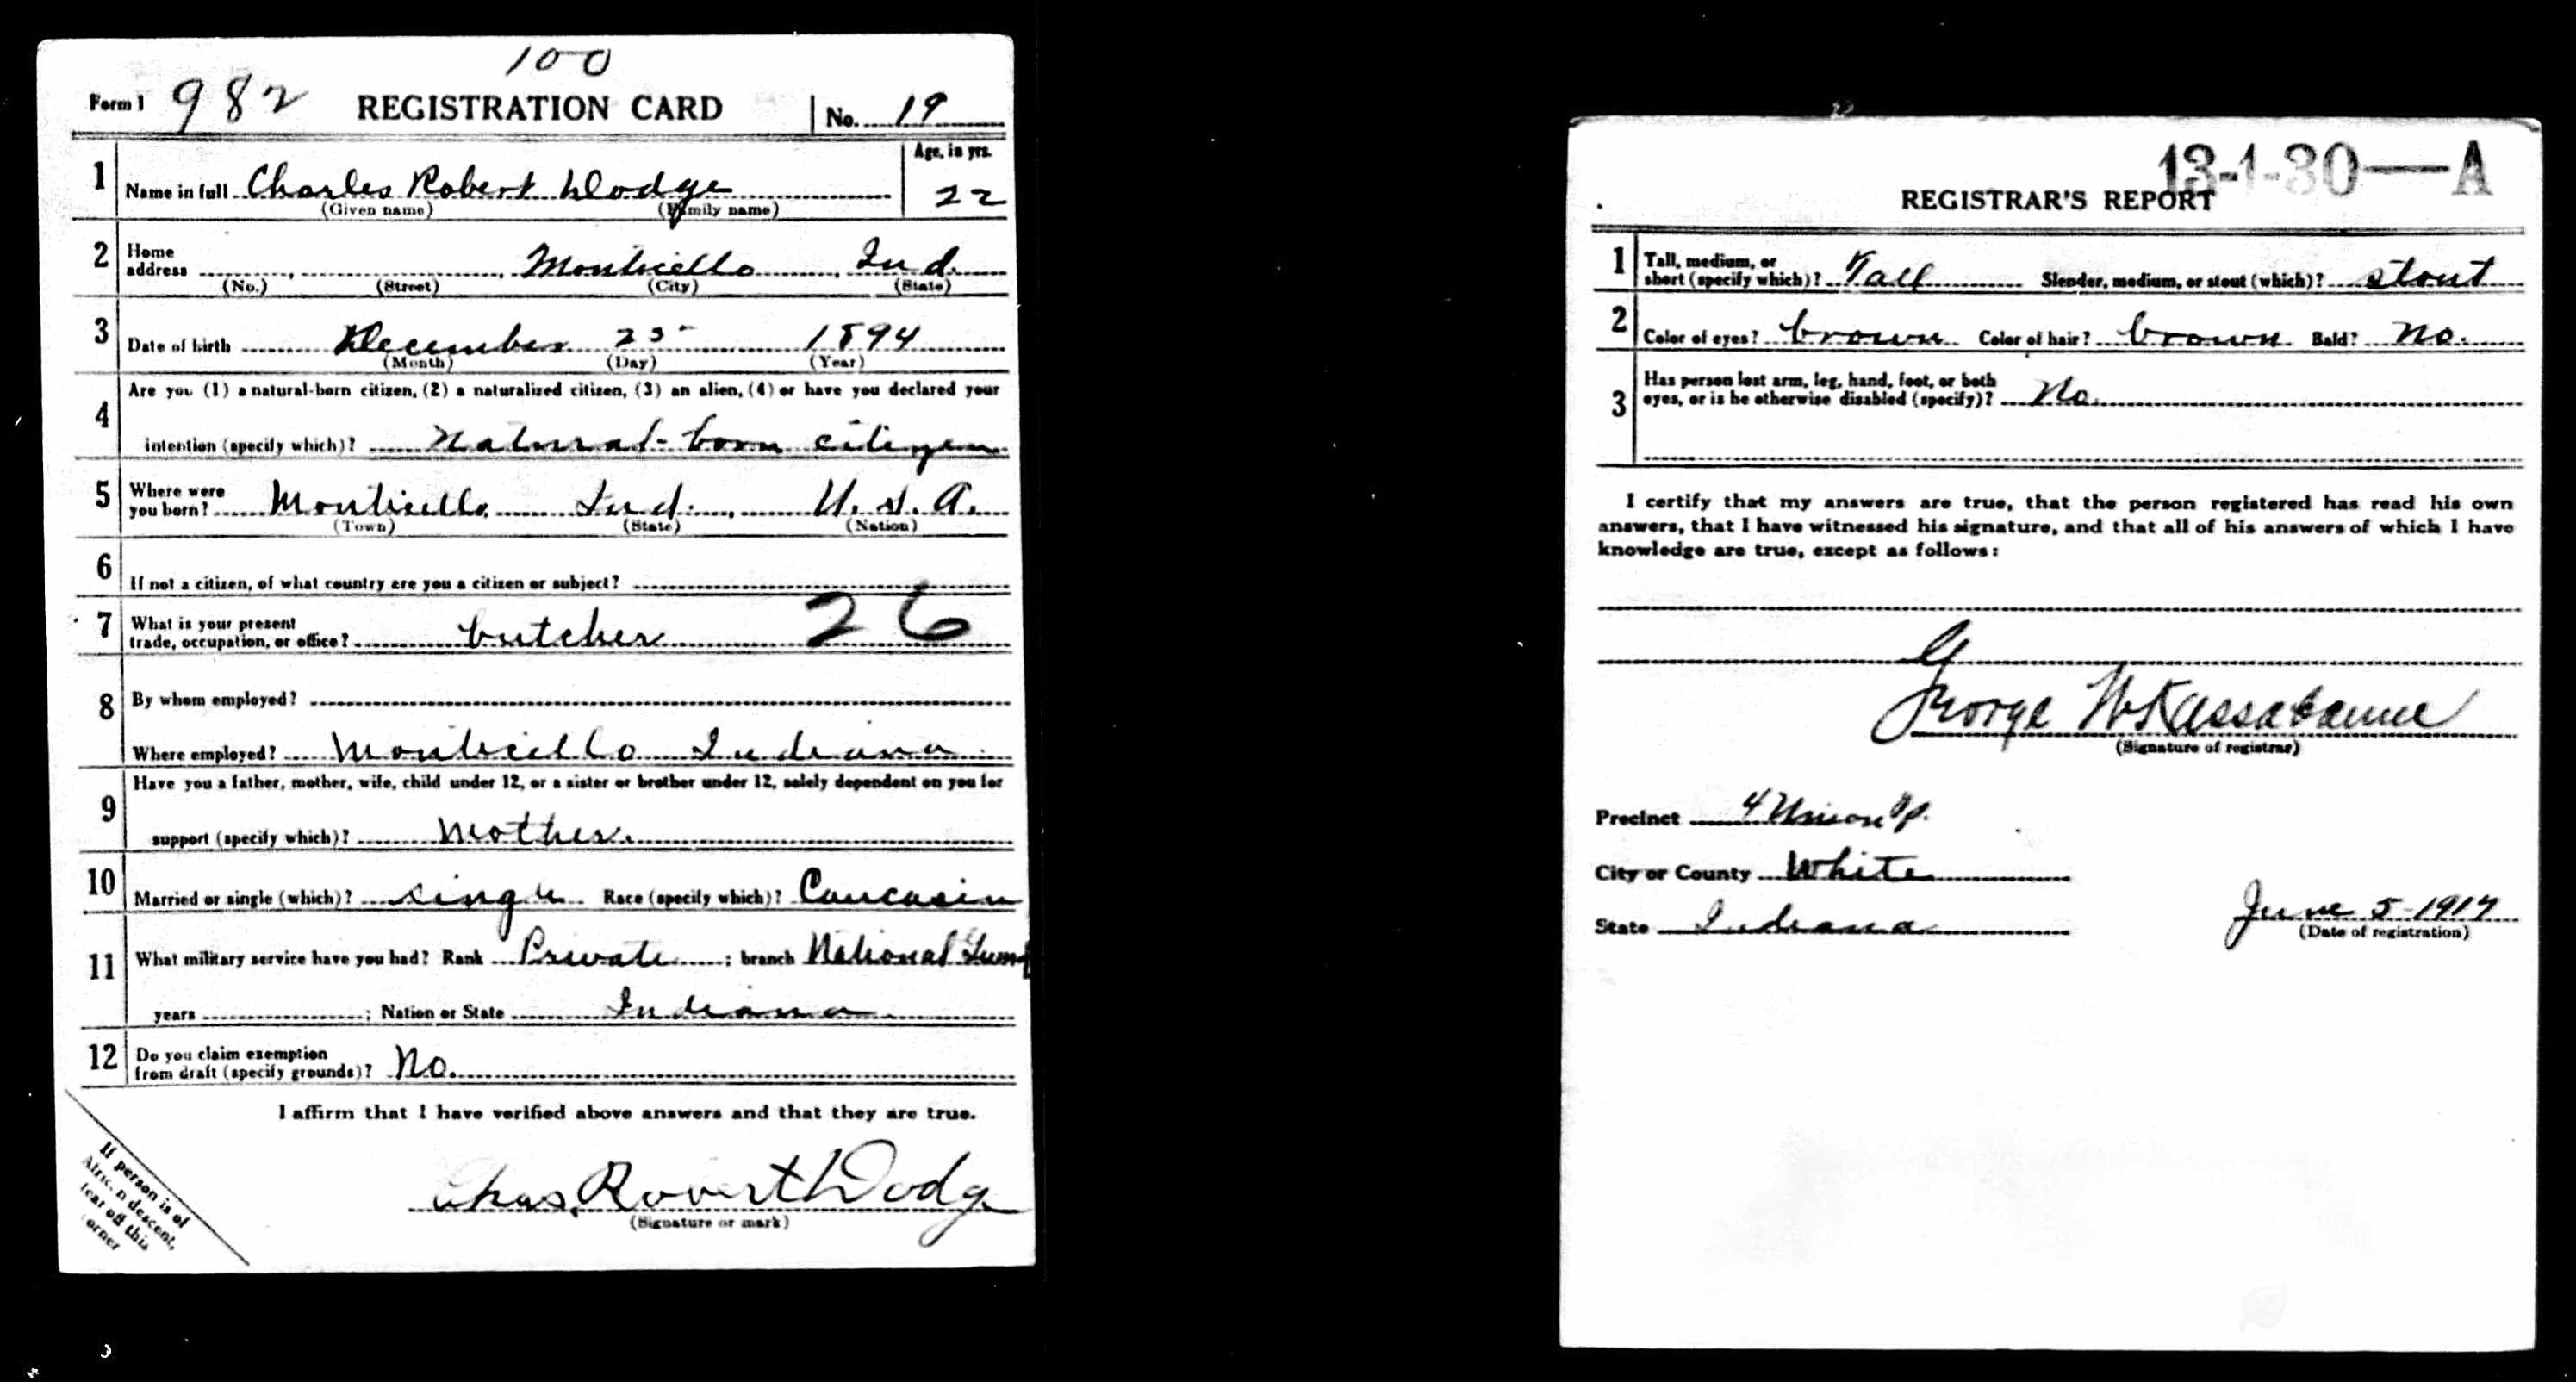 100
Form 1 982 REGISTRATION CARD No. 19
1 Name in full Charles Robert Dodge Age, in yrs. 22
(Given name) (Family name)
2 Home address Monticello, Ind.
(No.) (Street) (City) (State)
3 Date of birth December 25 1894
(Month) (Day) (Year)
4 Are you (1) a natural-born citizen, (2) a naturalized citizen, (3) an alien, (4) or have you declared your
intention (specify which)? Natural-born citizen
5 Where were you born? Monticello, Ind., U.S.A.
(Town) (State) (Nation)
6 If not a citizen, of what country are you a citizen or subject?
7 What is your present trade, occupation, or office? butcher 26
8 By whom employed?
Where employed? Monticello Indiana
9 Have you a father, mother, wife, child under 12, or a sister or brother under 12, solely dependent on you for
support (specify which)? Mother.
10 Married or single (which)? single Race (specify which)? Caucasin
11 What military service have you had? Rank Private; branch National
years ; Nation or State Indiana
12 Do you claim exemption from draft (specify grounds)? No.
I affirm that I have verified above answers and that they are true.
Chas. Robert Dodge
(Signature or mark)
If person is of
African descent,
tear off this
corner
13-1-30—A
REGISTRAR'S REPORT
1 Tall, medium, or short (specify which)? Tall Slender, medium, or stout (which)? stout
2 Color of eyes? brown Color of hair? brown Bald? No.
3 Has person lost arm, leg, hand, foot, or both eyes, or is he otherwise disabled (specify)? No.
I certify that my answers are true, that the person registered has read his own
answers, that I have witnessed his signature, and that all of his answers of which I have
knowledge are true, except as follows:
George W Kassabaum
(Signature of registrar)
Precinct 4 Union Tp.
City or County White
State Indiana
June 5-1917
(Date of registration)